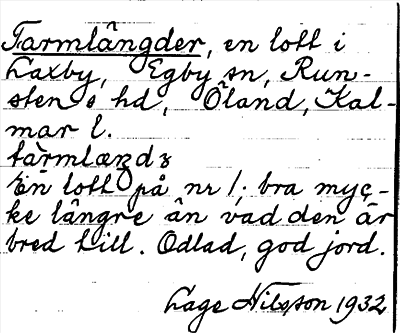 Tarmlängder, en lott i
Laxby, Egby sn, Run-
stens hd, Öland, Kal-
mar l.
En lott på nr 1. bra myc-
ke längre än vad den är
bred till. Odlad, god jord.
Lage Nilsson 1932